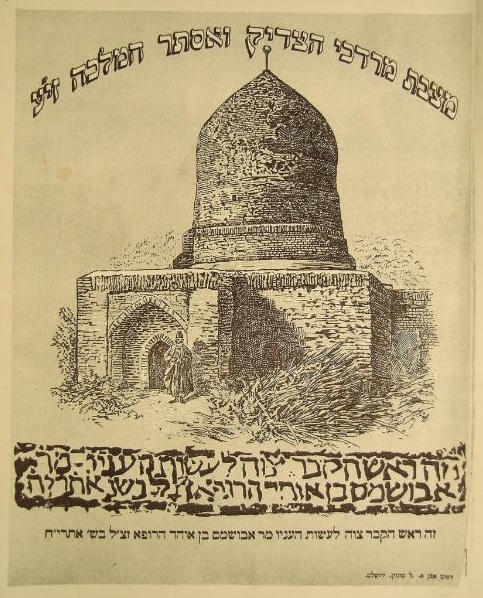 מצבת מרדכי הצדיק ואסתר המלכה זי״ע
זה ראש הקבר צוה לעשות העניו מר
אבושמס בן אוהד הרופא זצ״ל בש׳ אתרי״ח
זה ראש הקבר צוה לעשות העניו מר אבושמס בן איהד הרופא זצ״ל בש׳ אתרי״ח
דפוס אבן א. ל. מונזון, ירושלם.